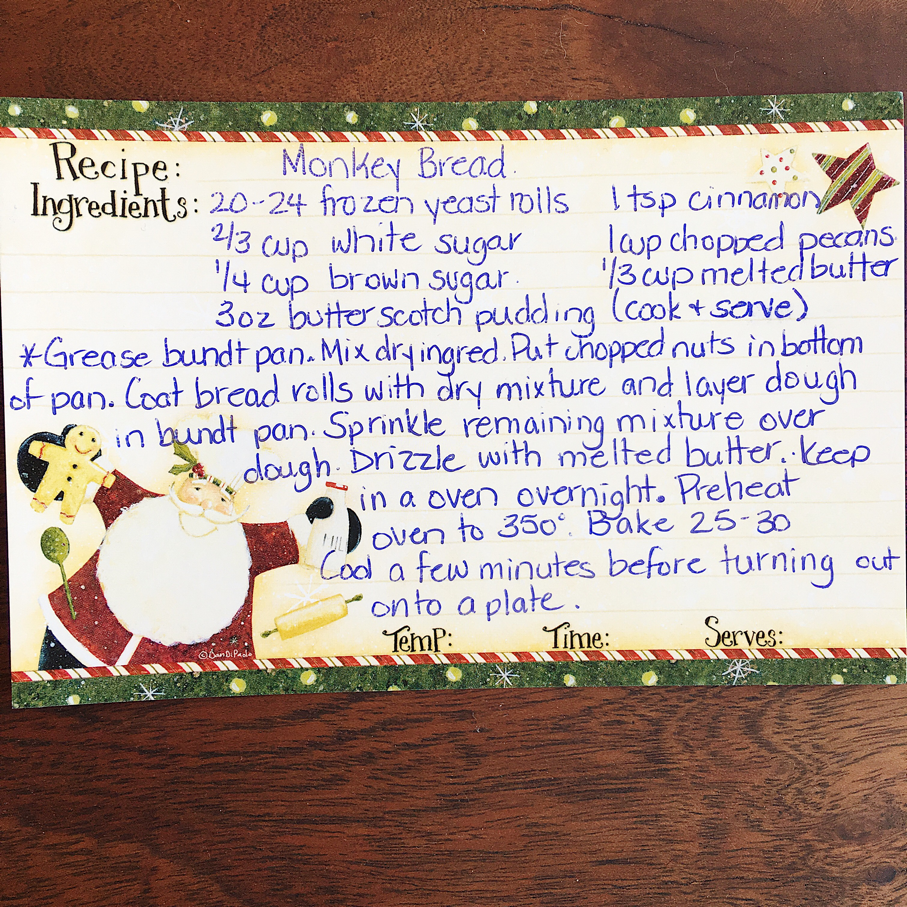 Recipe: Monkey Bread.
Ingredients: 20-24 frozen yeast rolls 1 tsp cinnamon
2/3 cup white sugar 1 cup chopped pecans
1/4 cup brown sugar 1/3 cup melted butter
3oz butterscotch pudding (cook + serve)
*Grease bundt pan. Mix dry ingred. Put chopped nuts in bottom
of pan. Coat bread rolls with dry mixture and layer dough
in bundt pan. Sprinkle remaining mixture over
dough. Drizzle with melted butter. Keep
in a oven overnight. Preheat
oven to 350°. Bake 25-30
Cool a few minutes before turning out
onto a plate.
Temp: Time: Serves: